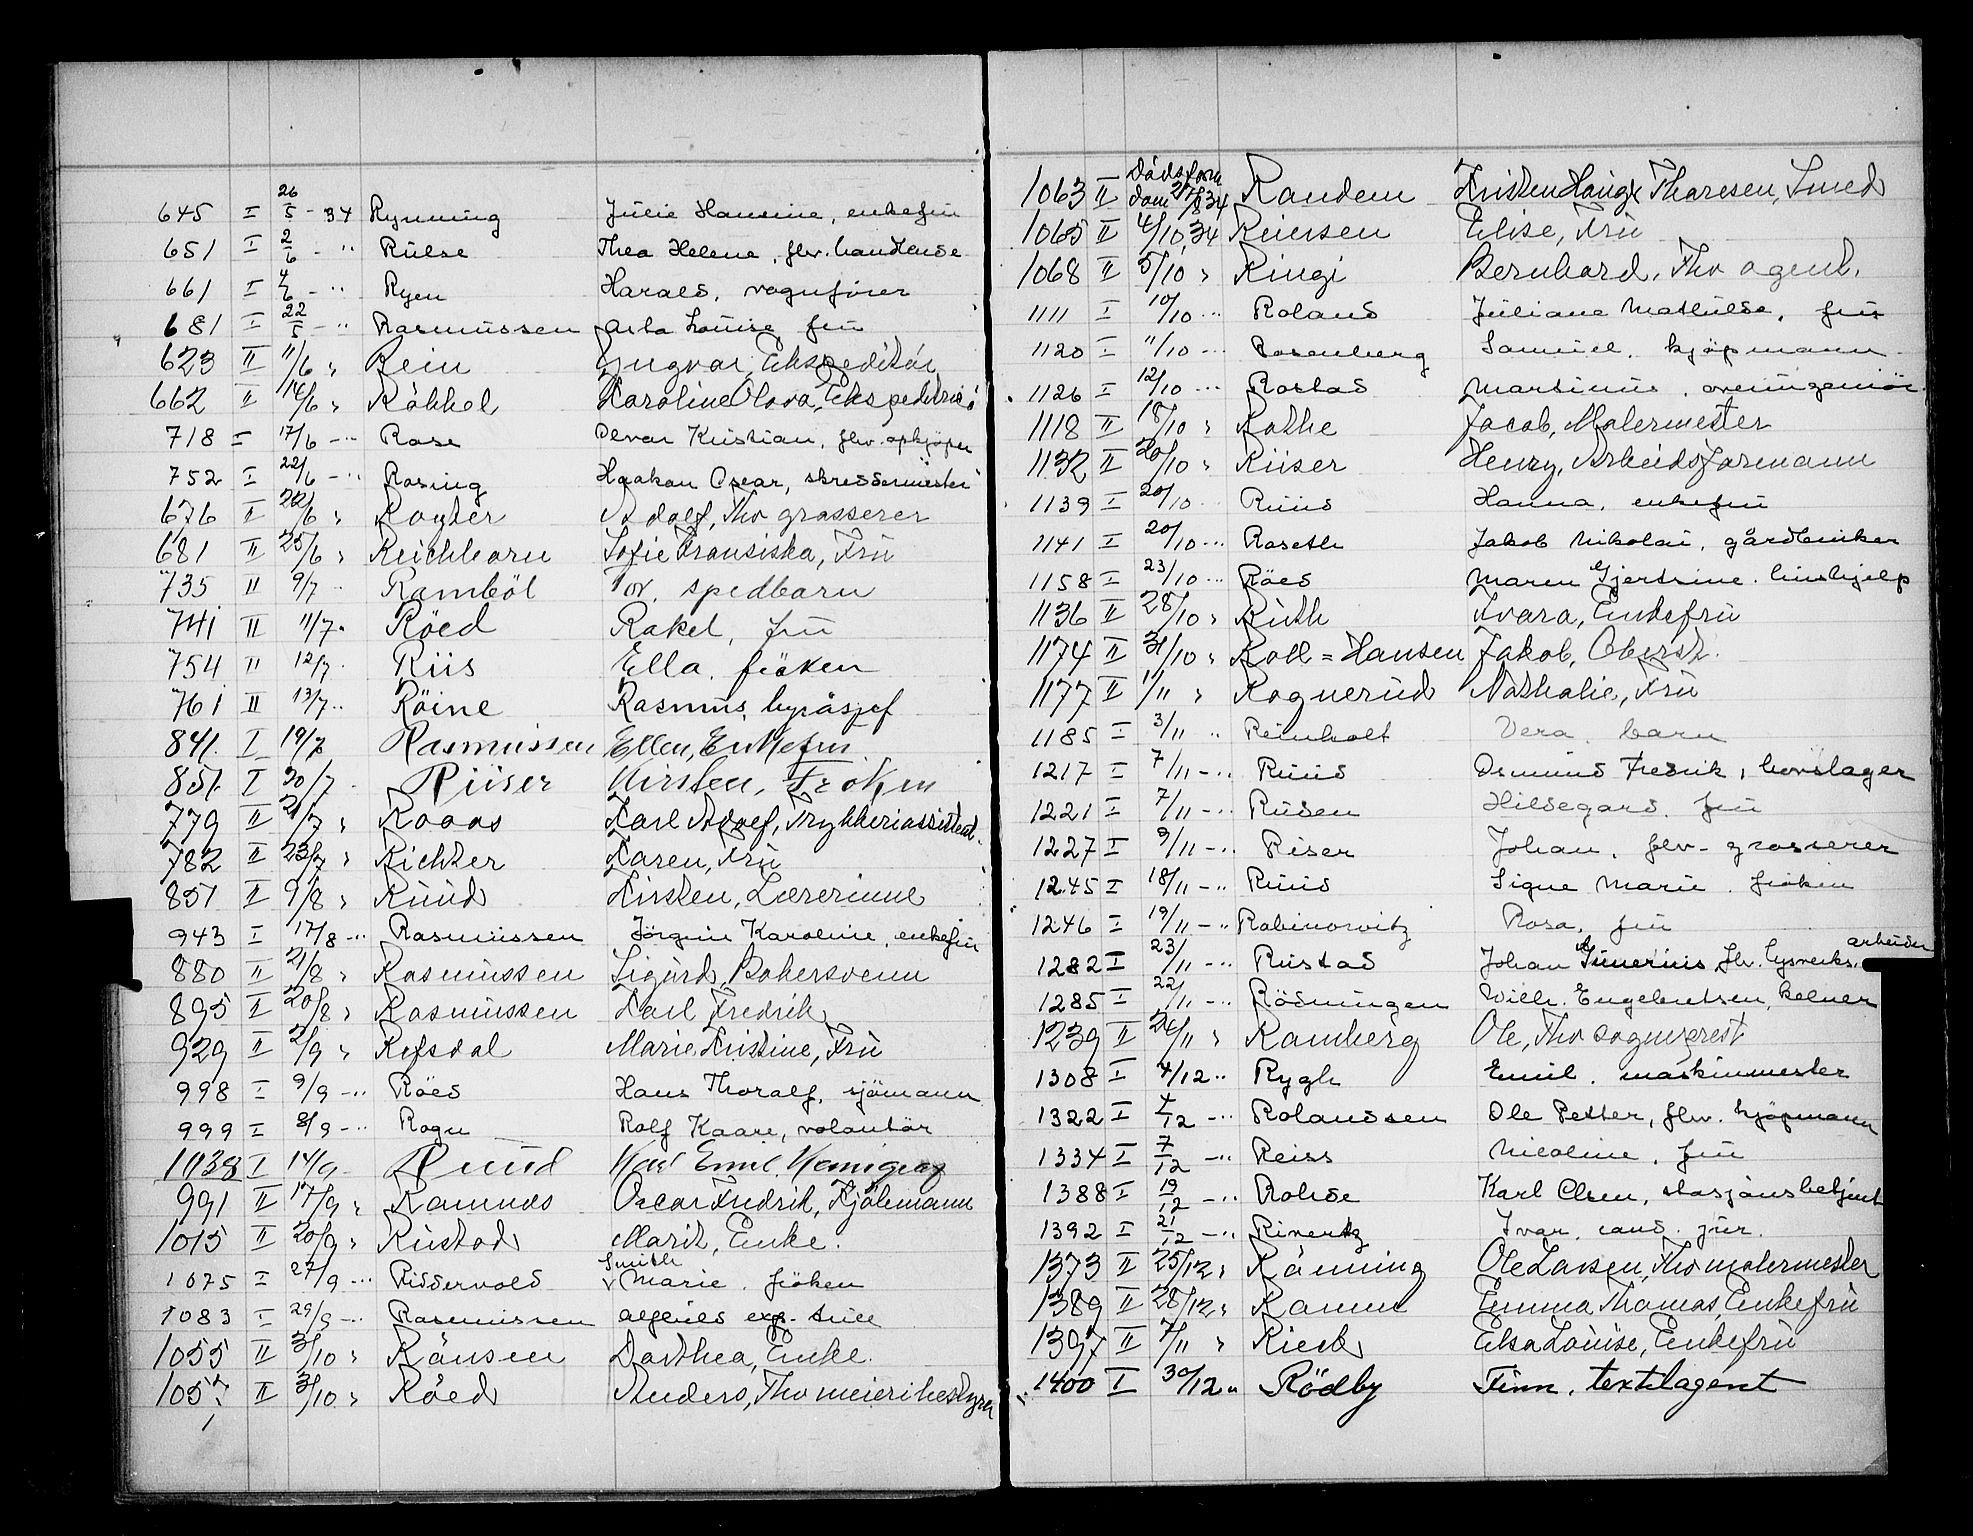 645 I 26/5 - 34 Rynning Julie Hansine, enkefru
651 I 2/6 - " Rulse Thea Helene, flv. handlende
661 I 4/6 - " Ryen Harald, vognfører
681 I 22/5 - " Rasmussen Asta Louise fru
623 II 11/6 " Rein Yngvar, Ekspeditör
662 II 14/6 " Råkkel Karoline Olava, Ekspeditrise
718 I 17/6 - " Rose Peder Kristian, flv. opkjøper
752 I 22/6 - " Rosing Haakon Oscar, skreddermester
676 II 22/6 " Royter Adolf, Fhv grosserer
681 II 25/6 " Reichborn Sofie Fransiska, Fru
735 II 9/7 " Ramböl Tor. spedbarn
741 II 11/7 " Röed Rakel, fru
754 II 12/7 Riis Ella. fröken
761 II 13/7 " Röine Rasmus, byråsjef
841. I 19/7 Rasmussen Ellen, Enkefru
851 I 20/7 Riiser Kirsten, Fröken
779 II 21/7 " Roaas Karl Adolf, Trykkeriassistent.
782 II 23/7 " Richter Karen, Fru
851 II 9/8 " Ruud Kirsten, Lærerinne
943 I 17/8 - " Rasmussen Jörgine Karoline, enkefru
880 II 21/8 " Rasmussen Sigurd, Bakersvenn
895 II 20/8 " Rasmussen Karl Fredrik
929 II 2/9 " Refsdal Marie Kristine, Fru
998 I 9/9 - " Röed Hans Thoralf, sjömann
999 I 8/9 - " Rogn Rolf Kaare, volontör
1038 I 14/9 Ruud Karl Emil,
991 II 17/9 " Ramnæs Oscar Fredrik, Kjölemann
1015 II 20/9 " Rustad Marit, Enke.
Smith
1075 I 27/9 - " Riddervold v Marie. fröken
1083 I 29/9 - " Rasmussen
1055 II 3/10 " Rånsen Dorthea, Enke.
1057 II 3/10 " Röed Anders, Fhv meieribestyrer
1063 II Dödsform dom 27/8 34 Randem Kristen Haugk Tharesen, Smed
1065 II 4/10 34 Reiersen Elise, Fru
1068 II 5/10 " Ringi Bernhard. Fhv agent.
1111 I 10/10 - " Roland Juliane Mathilde, fru
1120 I 11/10 - " Rosenberg Samuel. kjöpmann
1126 I 12/10 - " Rostad Martinus. overingeniör
1118 II 18/10 " Rothe Jacob, Malermester
1132 II 20/10 " Riiser Henry, Arbeidsformann
1139 I 20/10 - " Ruud Hanna, enkefru
1141 I 20/10 - " Roseth Jakob Nikolai, gårdbruker
1158 I 23/10 - " Röed Maren Gjertrine. hushjelp
1136 II 28/10 " Ruth Tvara, Enkefru
1174 II 31/10 " Roll = Hansen Jakob, Oberst.
1177 II 1/11 " Rognerud Nathalie, Fru
1185 I 3/11 " Reinholt Vera. barn
1217 I 7/11 - " Ruud Osmund Fredrik, hovslager
1221 I 7/11 - " Ruden Hildegard. fru
1227 I 9/11 - " Riser Johan. flv - grosserer
1245 I 18/11 - " Ruud Signe Marie. fröken
1246 I 19/11 - " Rabinowitz Rosa. fru
1282 I 23/11 - " Rustad Johan Simenius flv. lysverks. arbeider
1285 I 22/11 - " Rödningen Wilh. Engebretsen, kelner
1239 II 24/11 " Ramberg Ole, Fhv sogneprest
1308 I 4/12 " Rygh Emil. maskinmester
1322 I 4/12 - " Rolandsen Ole Petter, flv. kjöpmann
1334 I 7/12 - " Reiss Nicoline. fru
1388 I 19/12 - " Rohde Karl Olsen, stasjonsbetjent
1392 I 21/12 - " Rivertz Ivar. cand. jur.
1373 II 25/12 " Rönning Ole Larsen, Fhv malermester
1389 II 28/12 " Ramm Emma Thomas, Enkefru
1397 II 7/11 " Rieck Elsa Louise, Enkefru
1400 I 30/12 " Rödby Finn. textilagent